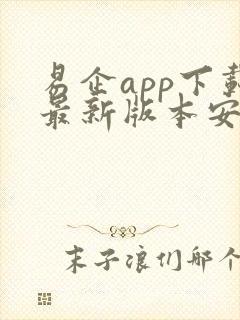 易企app下载
最新版本安
末子浪们那个